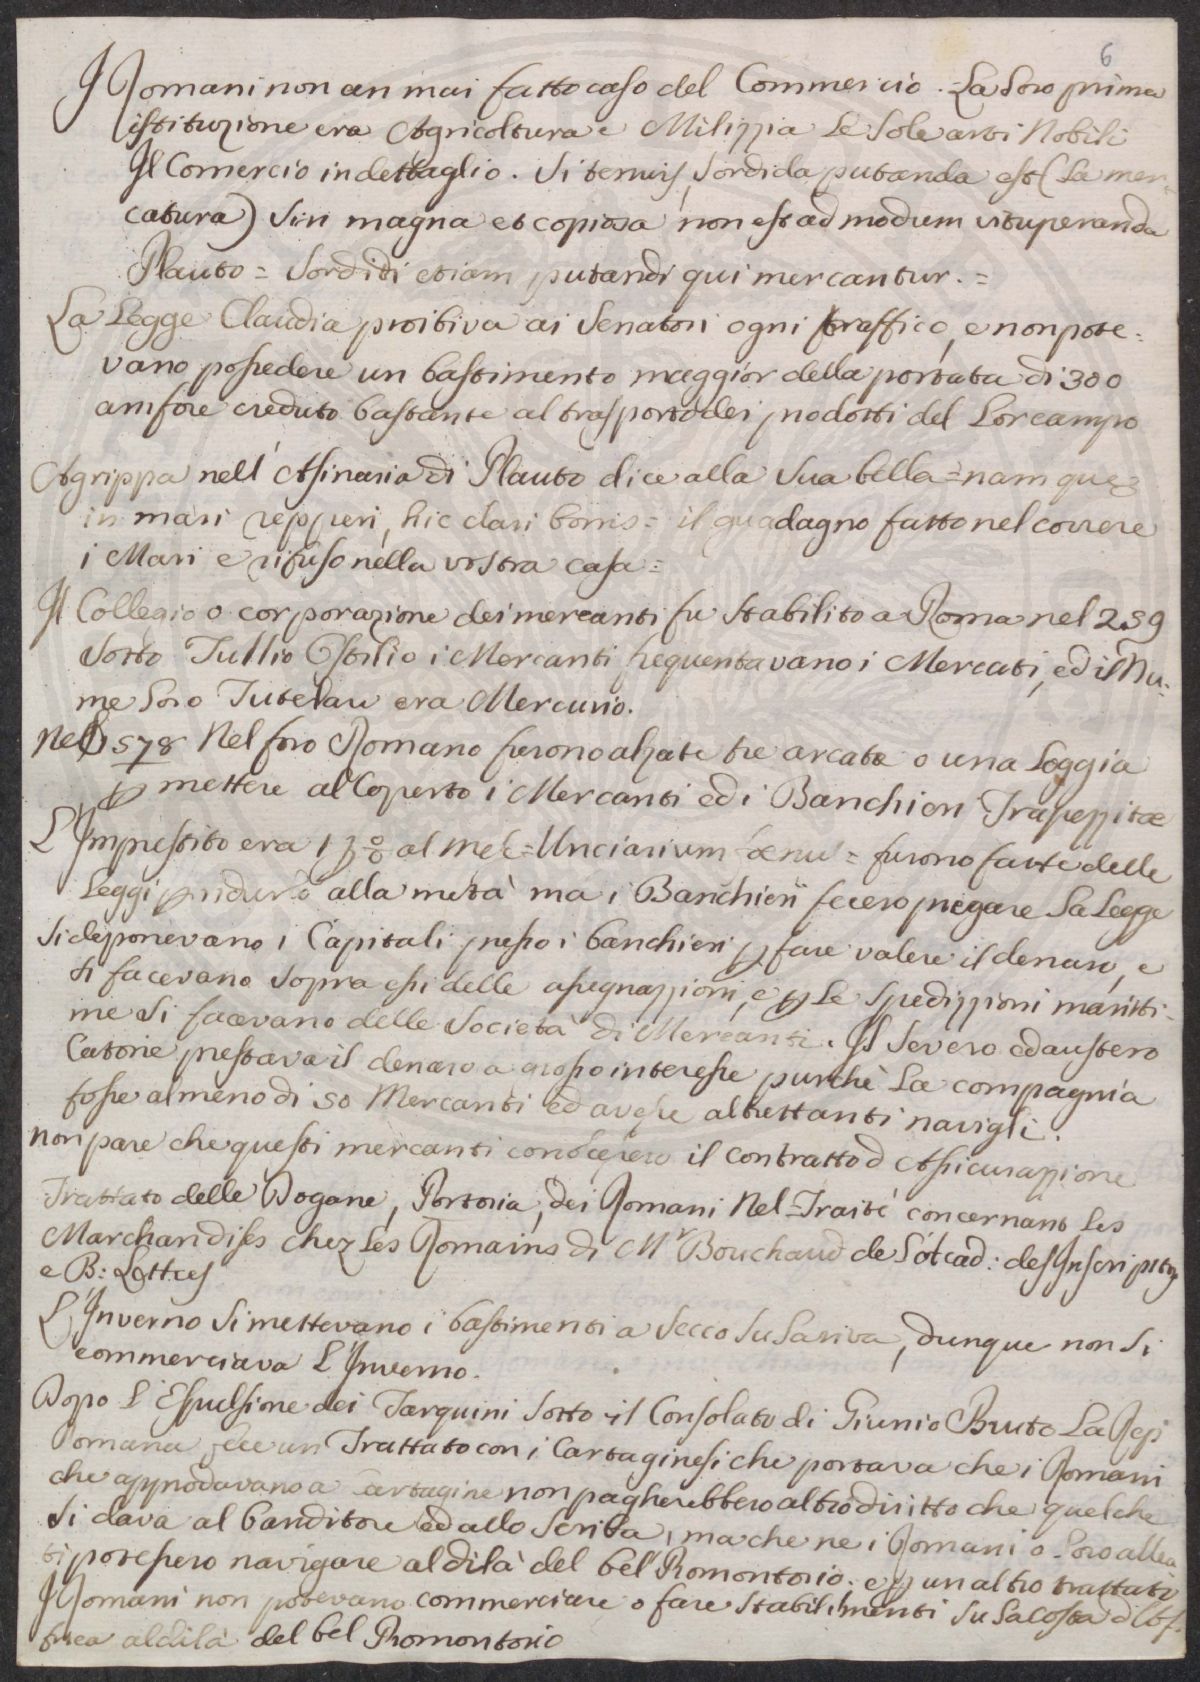 6
I Romani non an mai fatto caso del Commercio. La loro prima
istituzione era Agricoltura e Milizzia le Sole arti Nobili
Il Comercio in dettaglio. Si tenuis, Sordida putanda est (La mer=
catura) Sin magna et copiosa non est ad modum vituperanda
Plauto = Sorditi etiam putandi qui mercantur. =
La Legge Claudia proibiva ai Senatori ogni traffico, e non pote=
vano possedere un bastimento maggior della portata di 300
amfore creduto bastante al trasporto dei prodotti del Lor campo
Agrippa nell'Asinaria di Plauto dice alla Sua bella = nam que
in mari repperi, hic elavi bonis = il guadagno fatto nel correre
i Mari e rifuso nella vostra casa =
Il Collegio o corporazione dei mercanti fu Stabilito a Roma nel 259
Sotto Tullio Ostilio i Mercanti frequentavano i Mercati, ed il Nu=
me loro Tutelare era Mercurio.
Nel 578 Nel foro Romano furono alzate tre arcate o una Loggia
p mettere al Coperto i Mercanti ed i Banchieri Trapezzitæ
L'Imprestito era 1 % al mese = Unciarium fænus = furono fatte delle
Leggi p ridurlo alla metà ma i Banchieri fecero piegare La Legge
Si deponevano i Capitali presso i banchieri p fare valere il denaro, e
si facevano Sopra essi delle assegnazzioni, e p le Spedizzioni maritti=
me Si facevano delle Società di Mercanti. Il Severo ed austero
Catone prestava il denaro a grosso interesse purchè La compagnia
fosse almeno di 50 Mercanti ed avesse altrettanti navigli.
non pare che questi mercanti conoscessero il contratto d'Assicurazzione
Trattato delle Dogane, Portoria, dei Romani Nel = Traité concernant les
Marchandises chez Les Romains di Mr Bouchaud de l'Acad: des Inscriptns
e B: Lettres
L'Inverno Si mettevano i bastimenti a Secco Su La riva, dunque non Si
commerciava L'Inverno.
Dopo L'Espulsione dei Tarquini Sotto il Consolato di Giunio Bruto La Rep
Romana fece un Trattato con i Cartaginesi che portava che i Romani
che approdavano a Cartagine non pagherebbero altro diritto che quel che
Si dava al banditore ed allo Scriba, ma che ne i Romani o loro allea
ti potessero navigare al di là del bel Promontorio. e p un altro trattato
I Romani non potevano commerciare o fare Stabilimenti Su La Costa d'Af=
frica al di là del bel Promontorio